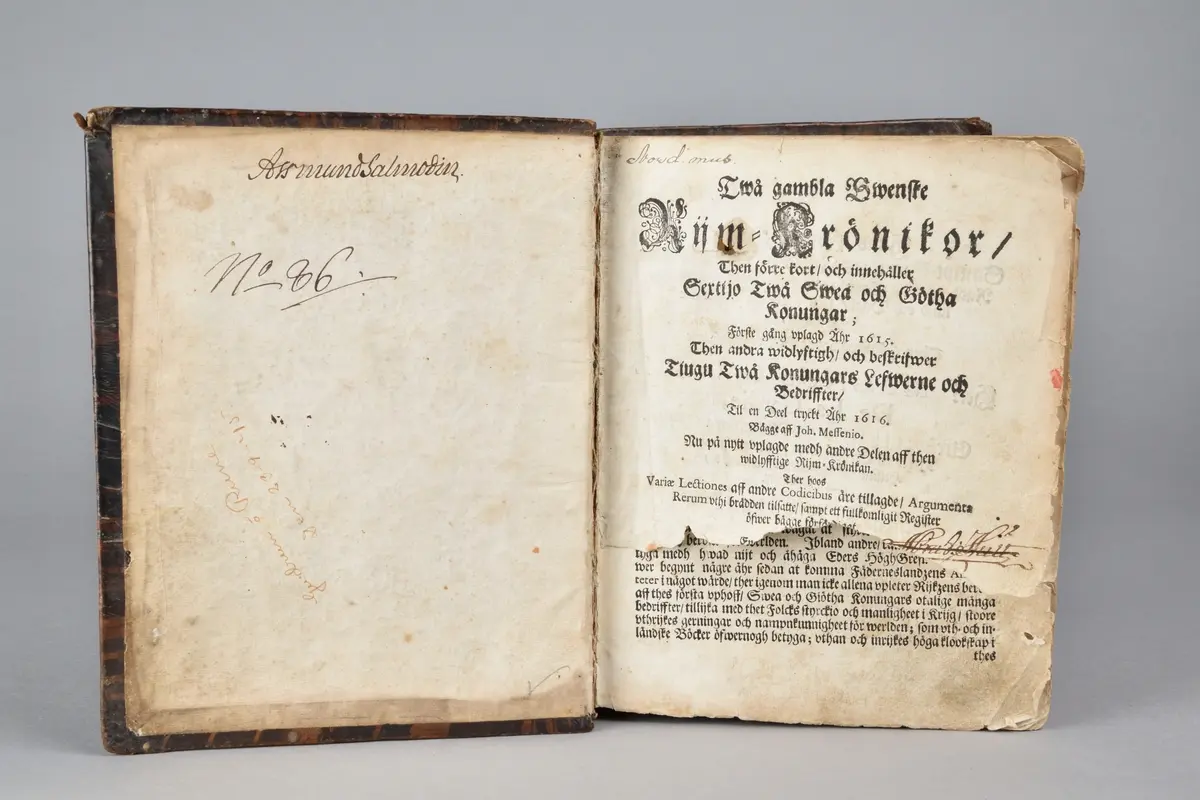 Asmund Salmodin
No 86.
Twå gambla Swenske
Rijm-Krönikor/
Then förre kort/ och innehåller
Sextijo Twå Swea och Götha
Konungar;
Förste gång vplagd Åhr 1615.
Then andra widlyftigh/ och beskrifwer
Tiugu Twå Konungars Lefwerne och
Bedriffter/
Til en Deel tryckt Åhr 1616.
Bägge aff Joh. Messenio.
Nu på nytt vplagde medh andre Delen aff then
widlyfftige Rijm-Krönikan.
Ther hoos
Variæ Lectiones aff andre Codicibus äre tillagde/ Argumenta
Rerum vthi brädden tilsatte/ sampt ett fullkomligit Register
öfwer bägge
werlden. Ibland andre
tyga medh hwad nijt och åhåga Eders HöghGref.
wer begynt någre åhr sedan at komma Fäderneslandzens
teter i något wärde/ ther igenom man icke allena vpleter Rijkzens
aff thes första vphoff/ Swea och Giötha Konungars otalige många
bedriffter/ tillijka med thet Folcks styrckio och manligheet i Krijg/ stoore
vthrijkes gerningar och nampnkunnigheet för werlden; som vth- och in-
ländske Böcker öfwernogh betyga; vthan och inrijkes höga klookskap i
thes